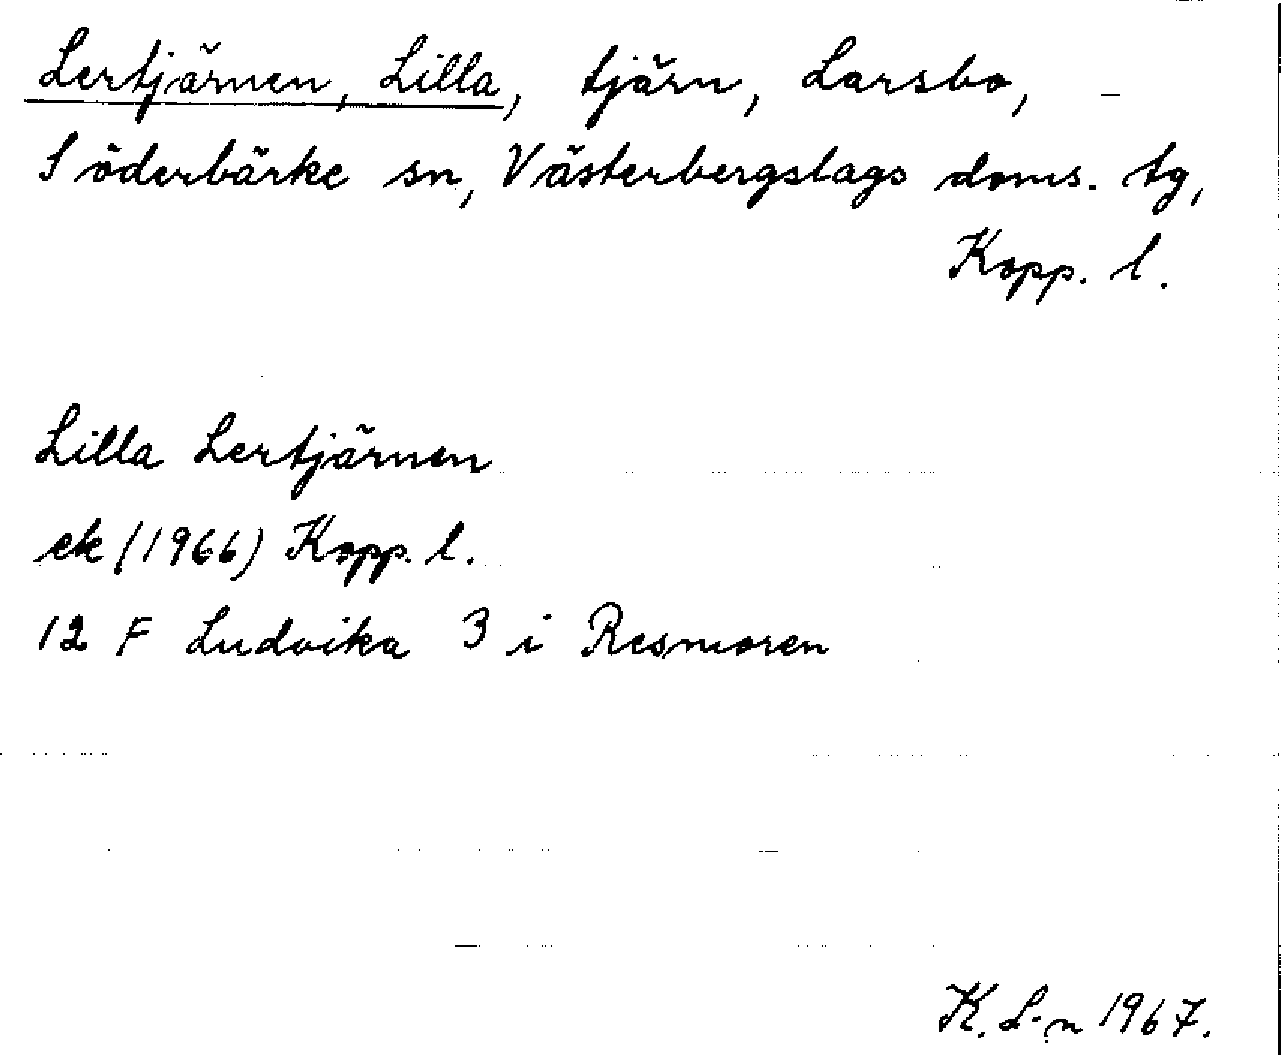 Lertjärnen, Lilla, tjärn, Larsbo, -
Söderbärke sn, Västerbergslags doms. tg,
Kopp. l.
Lilla Lertjärnen
ek (1966) Kopp. l.
12 F Ludvika 3 i Resmoren
K. L-n 1967.